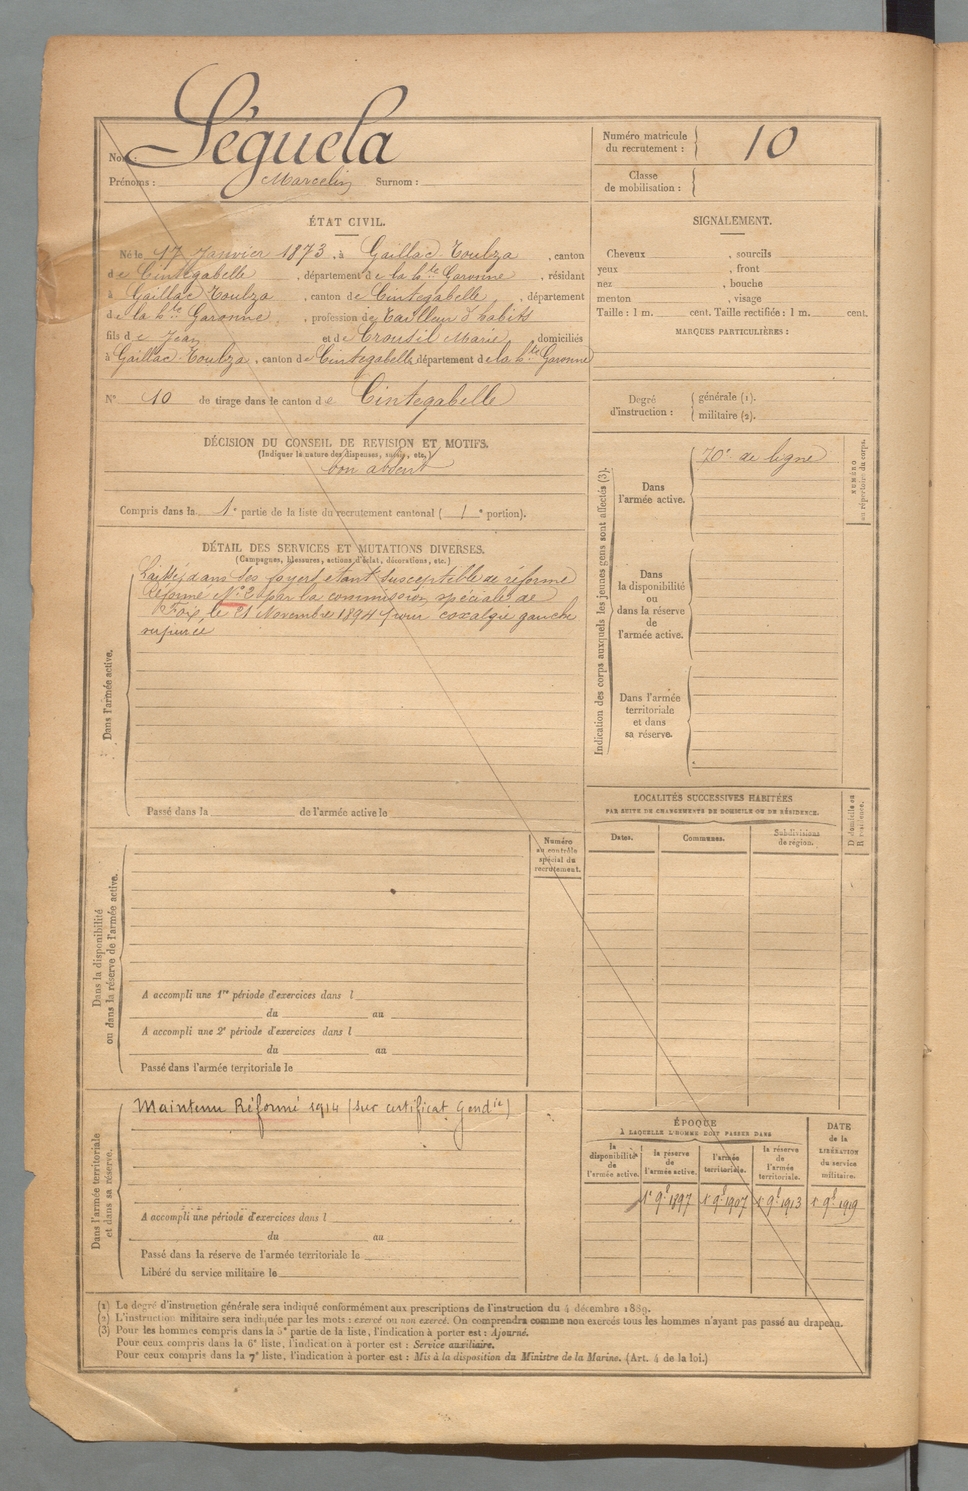 Nom : Séguela
Prénoms : Marcelin Surnom :
Numéro matricule
du recrutement : 10
Classe
de mobilisation :
ÉTAT CIVIL.
Né le 17 Janvier 1873, à Gaillac Toulza, canton
de Cintegabelle, département de la hte Garonne, résidant
à Gaillac Toulza, canton de Cintegabelle, département
de la hte Garonne, profession de Tailleur d'habits
fils de Jean et de Crousil Marie, domiciliés
à Gaillac Toulza, canton de Cintegabelle, département de la hte Garonne
N° 10 de tirage dans le canton de Cintegabelle
DÉCISION DU CONSEIL DE REVISION ET MOTIFS.
(Indiquer la nature des dispenses, sursis, etc.)
bon absent
Compris dans la 1e partie de la liste du recrutement cantonal ( 1e portion).
SIGNALEMENT.
Cheveux , sourcils
yeux , front
nez , bouche
menton , visage
Taille : 1 m. cent. Taille rectifiée : 1 m. cent.
MARQUES PARTICULIÈRES :
Degré
d'instruction :
générale (1).
militaire (2).
Indication des corps auxquels les jeunes gens sont affectés (3).
Dans
l'armée active.
70e de ligne
NUMÉRO
au répertoire du corps.
Dans
la disponibilité
ou
dans la réserve
de
l'armée active.
Dans l'armée
territoriale
et dans
sa réserve.
DÉTAIL DES SERVICES ET MUTATIONS DIVERSES.
(Campagnes, blessures, actions d'éclat, décorations, etc.)
Dans l'armée active.
Laissé dans ses foyers étant susceptible de réforme
Réformé N° 2 par la commission spéciale de
Foix, le 21 Novembre 1894 pour coxalgie gauche
Passé dans la de l'armée active le
Dans la disponibilité
ou dans la réserve de l'armée active.
Numéro
au contrôle
spécial du
recrutement.
A accompli une 1re période d'exercices dans l
du au
A accompli une 2e période d'exercices dans l
du au
Passé dans l'armée territoriale le
LOCALITÉS SUCCESSIVES HABITÉES
PAR SUITE DE CHANGEMENTS DE DOMICILE OU DE RÉSIDENCE.
Dates. Communes. Subdivisions
de région.
D domicile ou
R résidence.
Dans l'armée territoriale
et dans sa réserve.
Maintenu Réformé 1914 (sur certificat Gendie)
A accompli une période d'exercices dans l
du au
Passé dans la réserve de l'armée territoriale le
Libéré du service militaire le
ÉPOQUE
À LAQUELLE L'HOMME DOIT PASSER DANS
la
disponibilité
de
l'armée active.
la réserve
de
l'armée active.
l'armée
territoriale.
la réserve
de
l'armée
territoriale.
DATE
de la
LIBÉRATION
du service
militaire.
1r 9b 1897 1r 9b 1907 1r 9b 1913 1r 9b 1919
(1) Le degré d'instruction générale sera indiqué conformément aux prescriptions de l'instruction du 4 décembre 1889.
(2) L'instruction militaire sera indiquée par les mots : exercé ou non exercé. On comprendra comme non exercés tous les hommes n'ayant pas passé au drapeau.
(3) Pour les hommes compris dans la 5e partie de la liste, l'indication à porter est : Ajourné.
Pour ceux compris dans la 6e liste, l'indication à porter est : Service auxiliaire.
Pour ceux compris dans la 7e liste, l'indication à porter est : Mis à la disposition du Ministre de la Marine. (Art. 4 de la loi.)